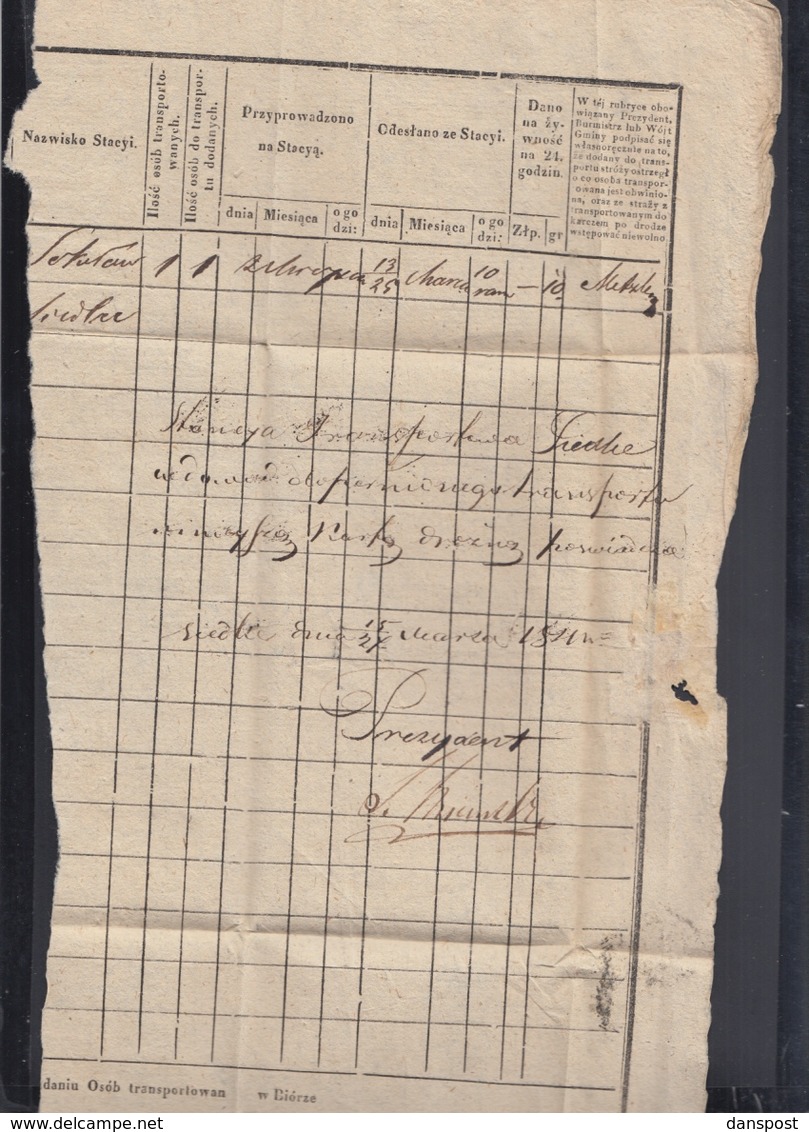 Nazwisko Stacyi.
Ilość osób transporto-
wanych.
Ilość osób do transpor-
tu dodanych.
Przyprowadzono
na Stacyą.
dnia
Miesiąca
o go
dzi:
Odesłano ze Stacyi.
dnia
Miesiąca
o go
dzi:
Dano
na ży-
wność
na 24.
godzin.
Złp.
gr
W téj rubryce obo-
wiązany Prezydent,
Burmistrz lub Wójt
Gminy podpisać się
własnoręcznie na to,
że dodany do trans-
portu stróży ostrzegł
o co osoba transpor-
towana jest obwinio-
na, oraz że straży z
transportowanym do
karczem po drodze
wstępować niewolno
Sokołów 1 1 13/25 Marca 10 rano – 10
Siedlce
Stancya Transportowa Siedlce
w dowód dopełnionego transportu
niniejszą Kartę drożną poświadcza
Siedlce dnia 15/27 Marca 1841 r=
Prezydent
daniu Osób transportowan w Biórze
danspost